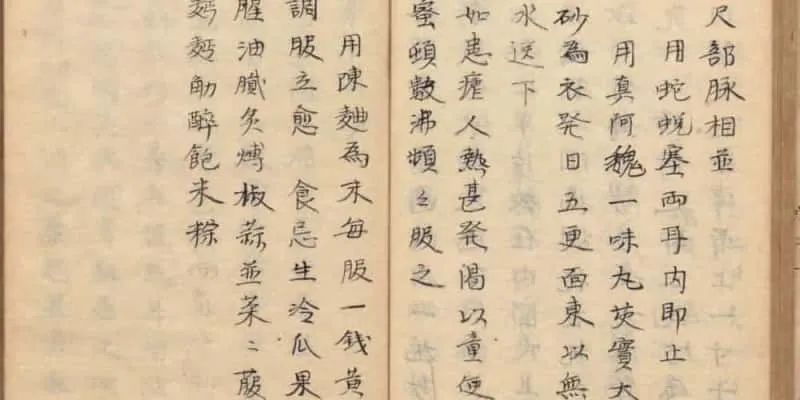 尺部脉相並
用蛇蜕塞両耳内即止
用真阿魏一味丸芡實大
砂為衣発日五更面東以無
水送下
如患瘧人熱甚発渴以童便
蜜頓数沸頻〻服之
用陳麯為末每服一錢黄
調服立愈 食忌生冷瓜果
腥油膩炙煿椒蒜並菜〻菔
麪醉飽米粽